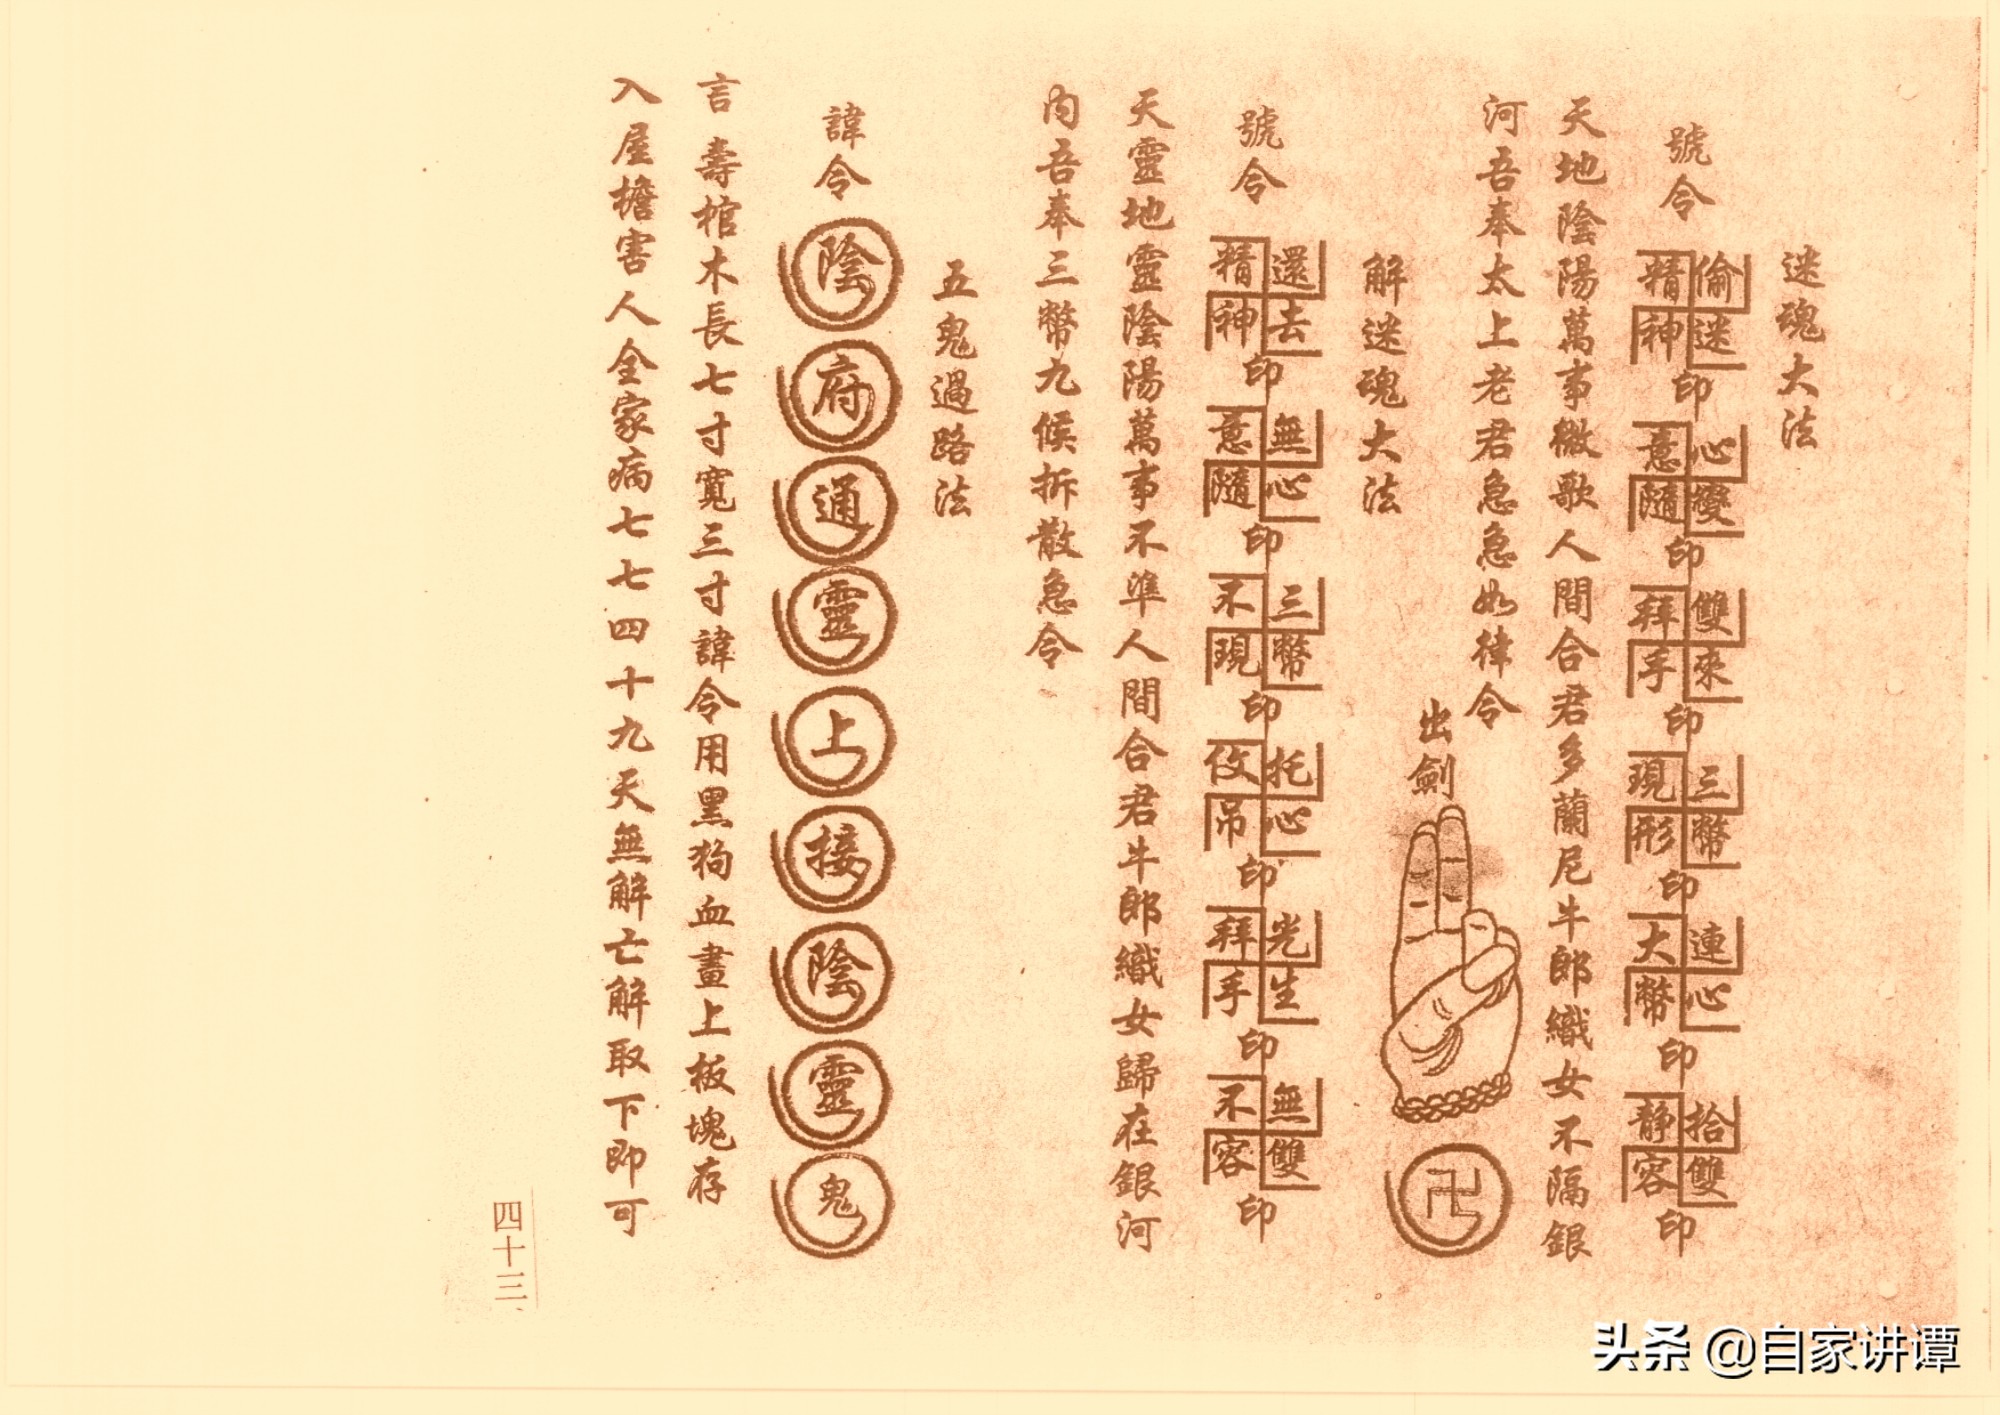 迷魂大法
號令 偷迷精神印 心變意隨印 雙來拜手印 三幣現形印 連心大幣印 拾雙靜容印
天地陰陽萬事微歌人間合君多蘭尼牛郎織女不隔銀
河吾奉太上老君急急如律令
出劍
卍
解迷魂大法
號令 還去精神印 無心意隨印 三幣不現印 托心伩吊印 光生拜手印 無雙不容印
天靈地靈陰陽萬事不準人間合君牛郎織女歸在銀河
內吾奉三幣九候拆散急令
五鬼過路法
諱令 陰府通靈上接陰靈鬼
言壽棺木長七寸寬三寸諱令用黑狗血畫上板塊存
入屋檐害人全家病七七四十九天無解亡解取下即可
四十三
头条 @自家讲谭